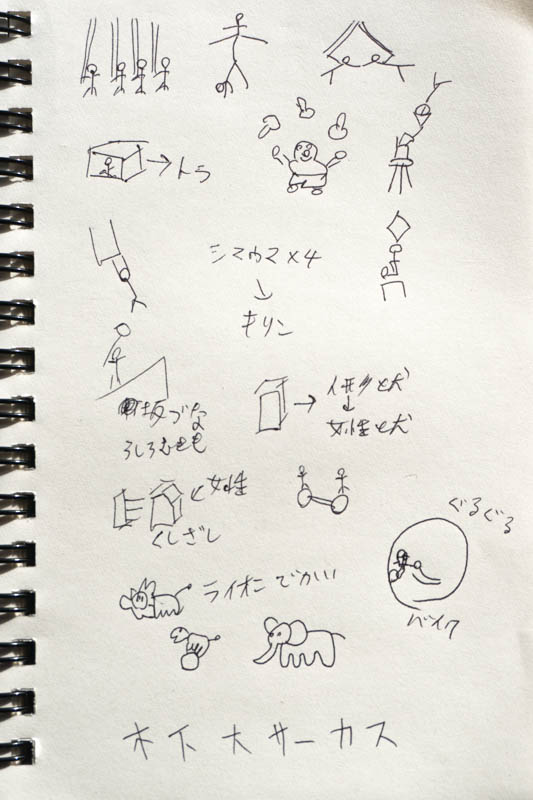 トラ
シマウマ×4
↓
キリン
坂づな
うしろむきも
→ 人形と犬
↓
女性と犬
女性
くしざし
ぐるぐる
バイク
ライオン でかい
木下大サーカス